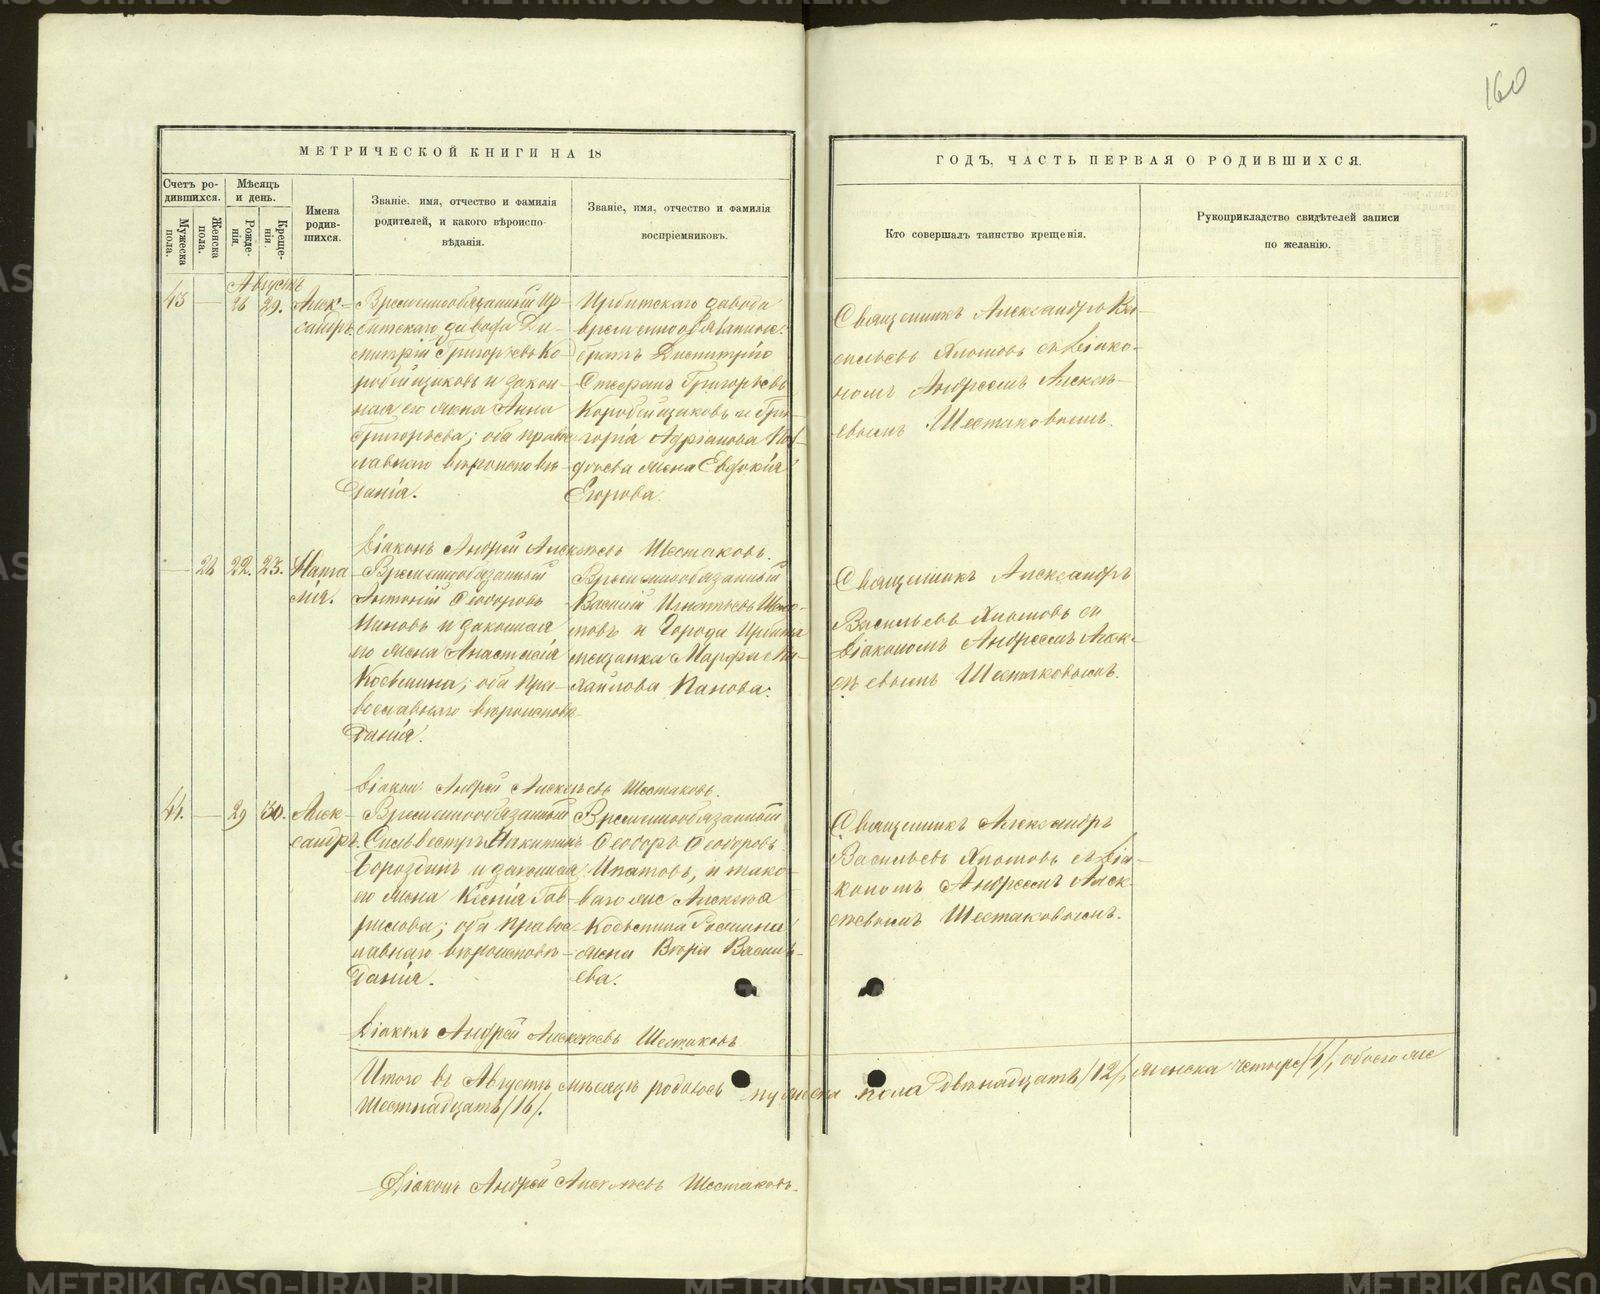 160
МЕТРИЧЕСКОЙ КНИГИ НА 18
ГОДЪ, ЧАСТЬ ПЕРВАЯ О РОДИВШИХСЯ.
Счетъ ро-
дившихся.
Мѣсяцъ
и день.
Мужеска
пола.
Женска
пола.
Рожде-
нія.
Креще-
нія.
Имена
родив-
шихся.
Званіе, имя, отчество и фамилія
родителей, и какого вѣроиспо-
вѣданія.
Званіе, имя, отчество и фамилія
воспріемниковъ.
Кто совершалъ таинство крещенія.
Рукоприкладство свидѣтелей записи
по желанію.
Августъ
43 — 26 29.
Алек-
сандръ
Временнообязанный Ир-
битскаго завода Ди-
митрій Григорьевъ Ко-
робейщиковъ и закон-
ная его жена Анна
Григорьева; оба право-
славнаго вѣроисповѣ-
данія.
Ирбитскаго завода
временнообязанные:
братъ Димитрія
Стефанъ Григорьевъ
Коробейщиковъ и Гри-
горія Адріанова
жена Евдокія
Егорова.
Священникъ Александръ Ва-
сильевъ Хлотовъ съ Діако-
номъ Андреемъ Алексѣ-
евымъ Шестаковымъ.
Діаконъ Андрей Алексѣевъ Шестаковъ.
— 22. 23.
Ната
лія.
Временнообязанный
Антоній Ѳеодоровъ
и законная
его жена Анастасія
оба пра-
вославнаго вѣроисповѣ-
данія.
Временнообязанный
Василій Игнатьевъ
и города Ирбита
мѣщанка Марфа Ми-
хайлова Панова.
Священникъ Александръ
Васильевъ Хлотовъ съ
Діакономъ Андреемъ Алек-
сѣевымъ Шестаковымъ.
Діаконъ Андрей Алексѣевъ Шестаковъ.
44. — 29 30.
Алек-
сандръ.
Временнообязанный
Сильвестръ Никитинъ
Бороздинъ и законная
его жена Ксенія Гав-
рилова; оба право-
славнаго вѣроисповѣ-
данія.
Временнообязанный
Ѳеодоръ Ѳеодоровъ
Ипатовъ, и тако-
ваго же Алексѣя
жена Вѣра Василь-
ева.
Священникъ Александръ
Васильевъ Хлотовъ съ Діа-
кономъ Андреемъ Алек-
сѣевымъ Шестаковымъ.
Діаконъ Андрей Алексѣевъ Шестаковъ
Итого въ Августѣ мѣсяцѣ родилось мужеска пола двѣнадцать /12/, женска четыре /4/, обоего же
Шестнадцать /16/.
Діаконъ Андрей Алексѣевъ Шестаковъ.
METRIKI.GASO-URAL.RU